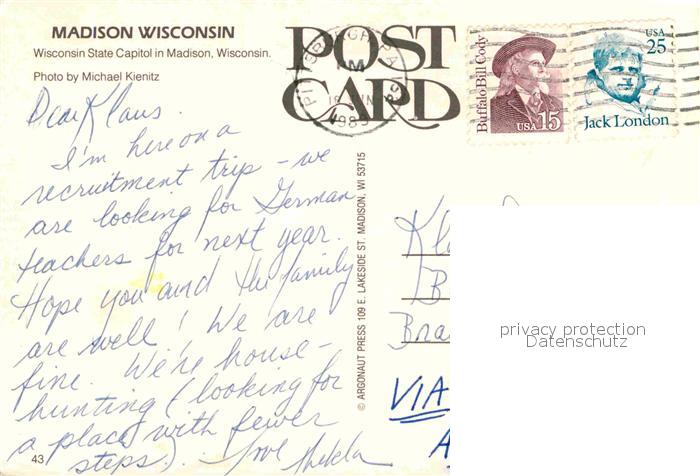 MADISON WISCONSIN
Wisconsin State Capitol in Madison, Wisconsin.
Photo by Michael Kienitz
POST
CARD
PITTSBURGH PA
PM
1989
Buffalo Bill Cody
USA 15
USA
25
Jack London
Dear Klaus.
I'm here on a
recruitment trip - we
are looking for German
teachers for next year.
Hope you and the family
are well! We are
fine. We're house-
hunting (looking for
a place with fewer
steps). Love Thekla
43
© ARGONAUT PRESS 109 E. LAKESIDE ST. MADISON, WI 53715
Kl
B
Bra
VIA
A
privacy protection
Datenschutz